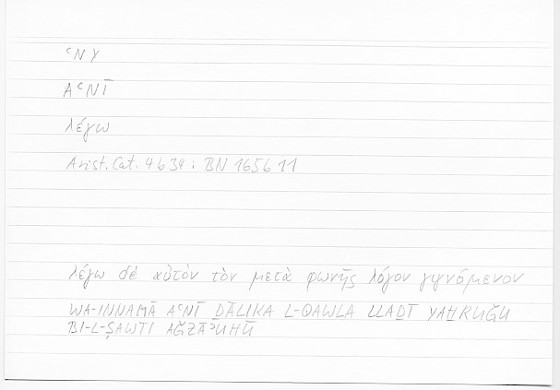 ʿNY
AʿNĪ
λέγω
Arist. Cat. 4 b 34 : BN 165 b 11
λέγω δὲ αὐτὸν τὸν μετὰ φωνῆς λόγον γιγνόμενον
WA-INNAMĀ AʿNĪ ḎĀLIKA L-QAWLA LLAḎĪ YAḪRUǦU
BI-L-ṢAWTI AǦZĀʾUHŪ